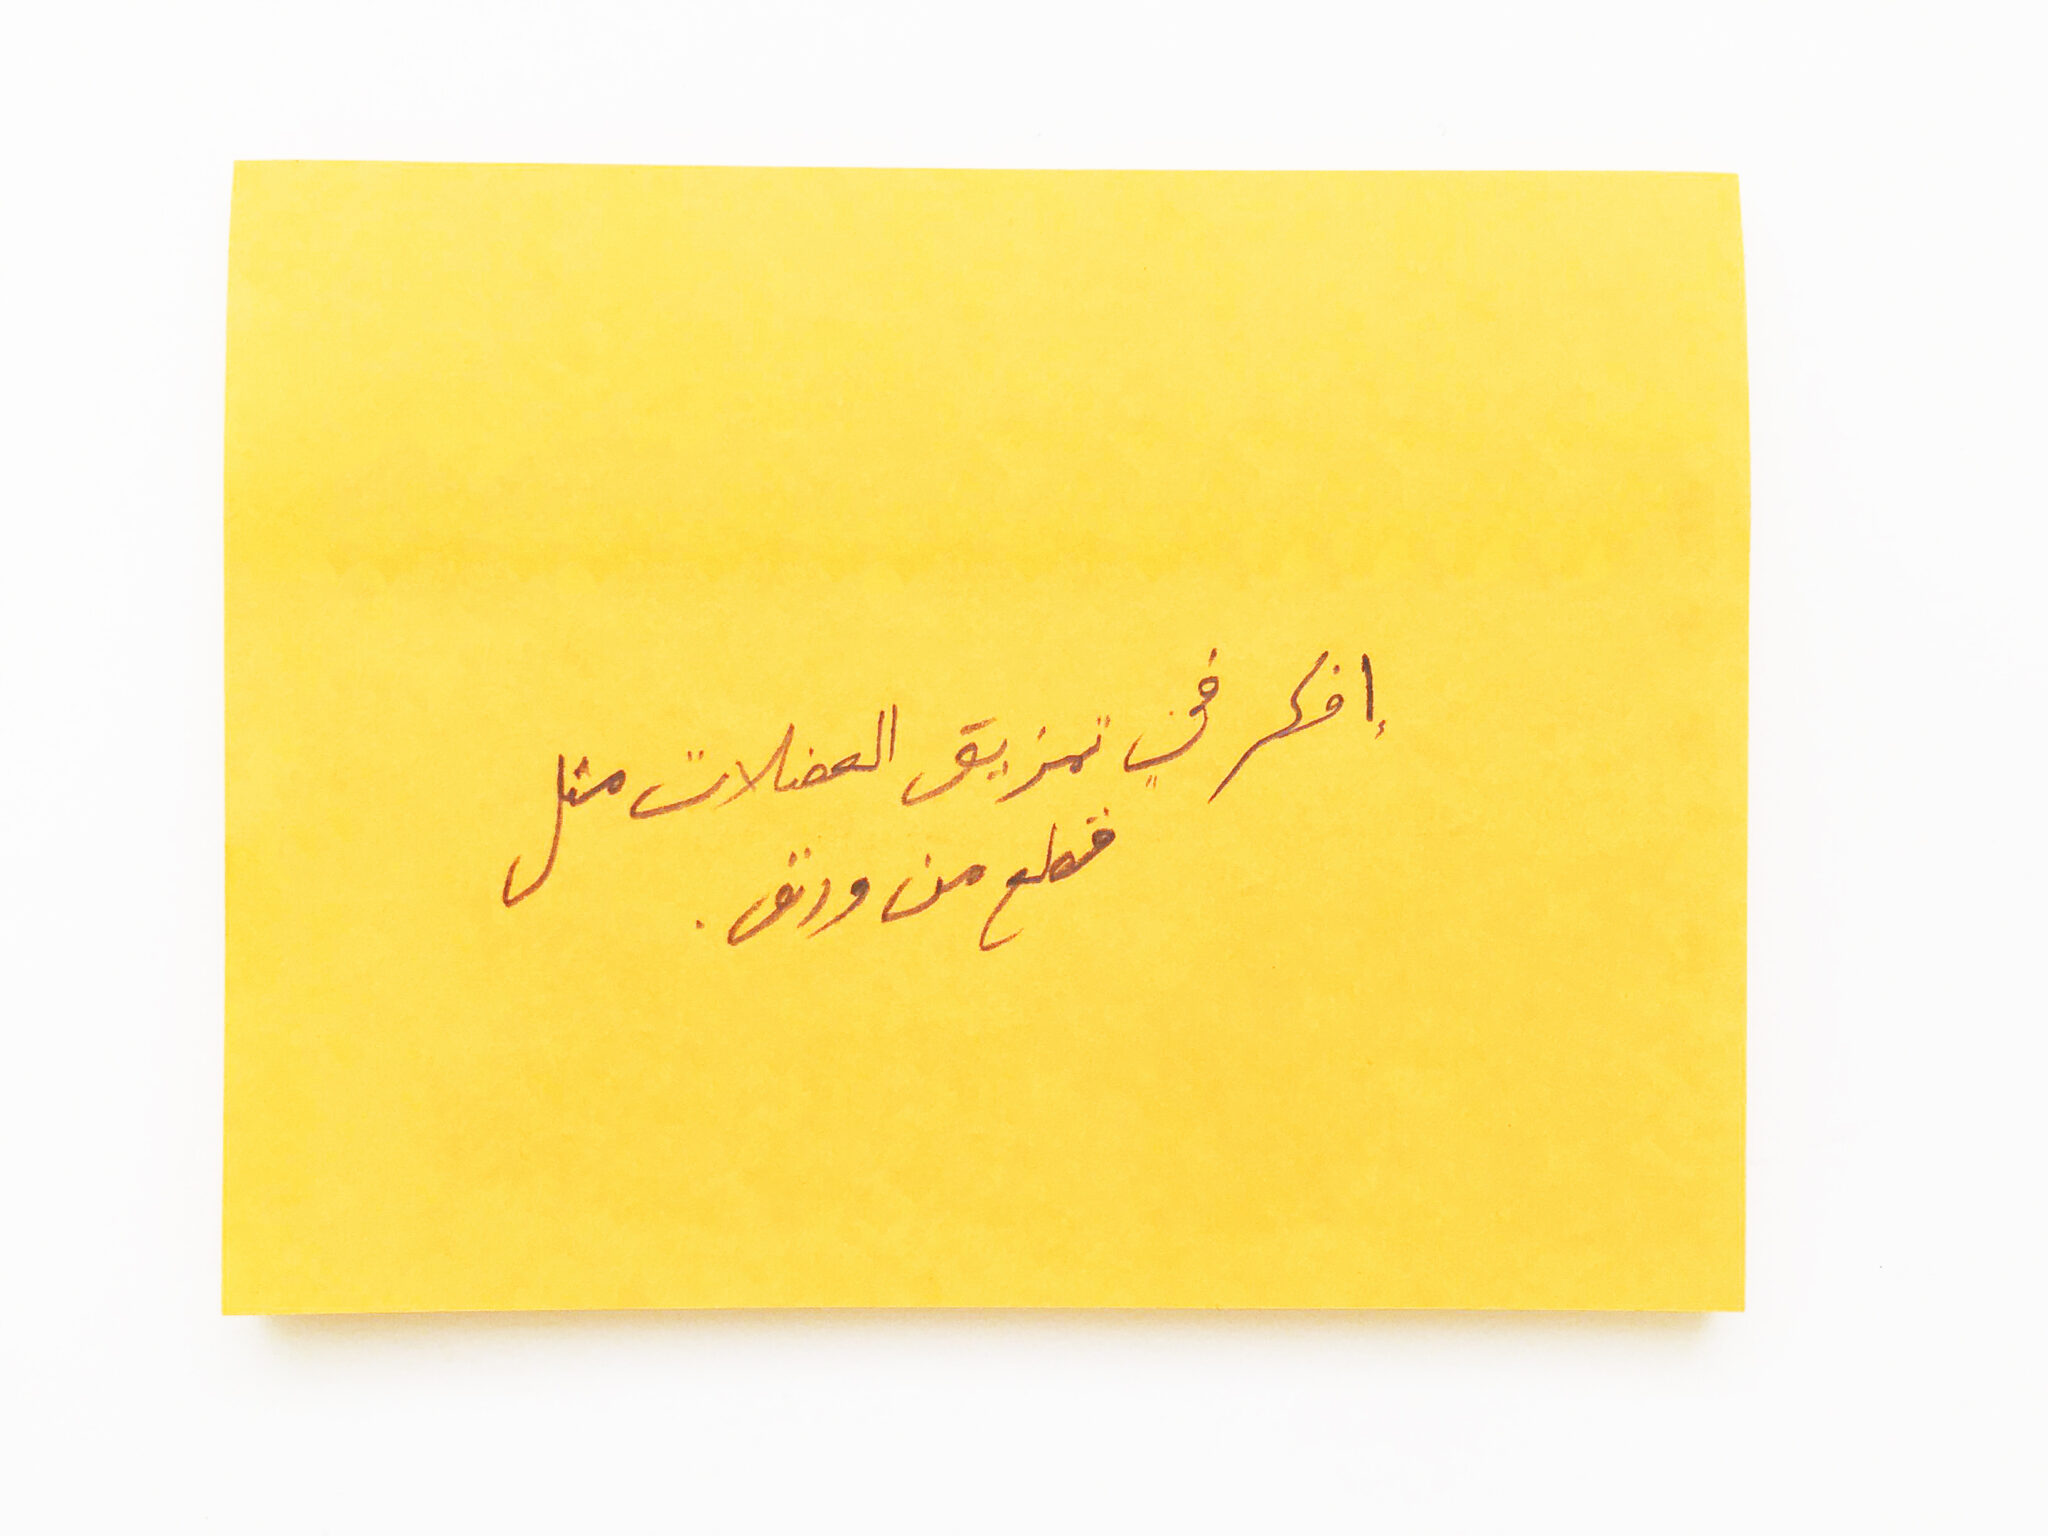 إفكر في تمزيق العضلات مثل
قطع من ورق.